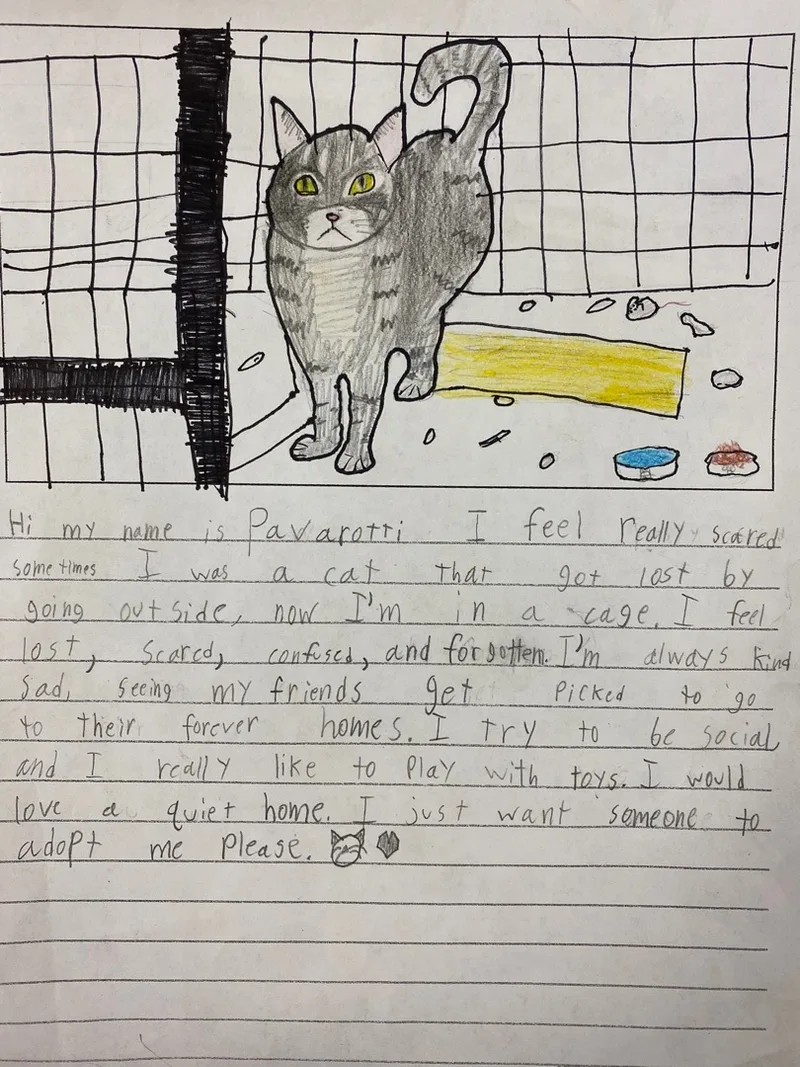 Hi my name is Pavarotti I feel really scared
sometimes I was a cat that got lost by
going outside, now I'm in a cage. I feel
lost, scared, confused, and forgotten. I'm always kind
sad, seeing my friends get picked to go
to their forever homes. I try to be social
and I really like to play with toys. I would
love a quiet home. I just want someone to
adopt me please.